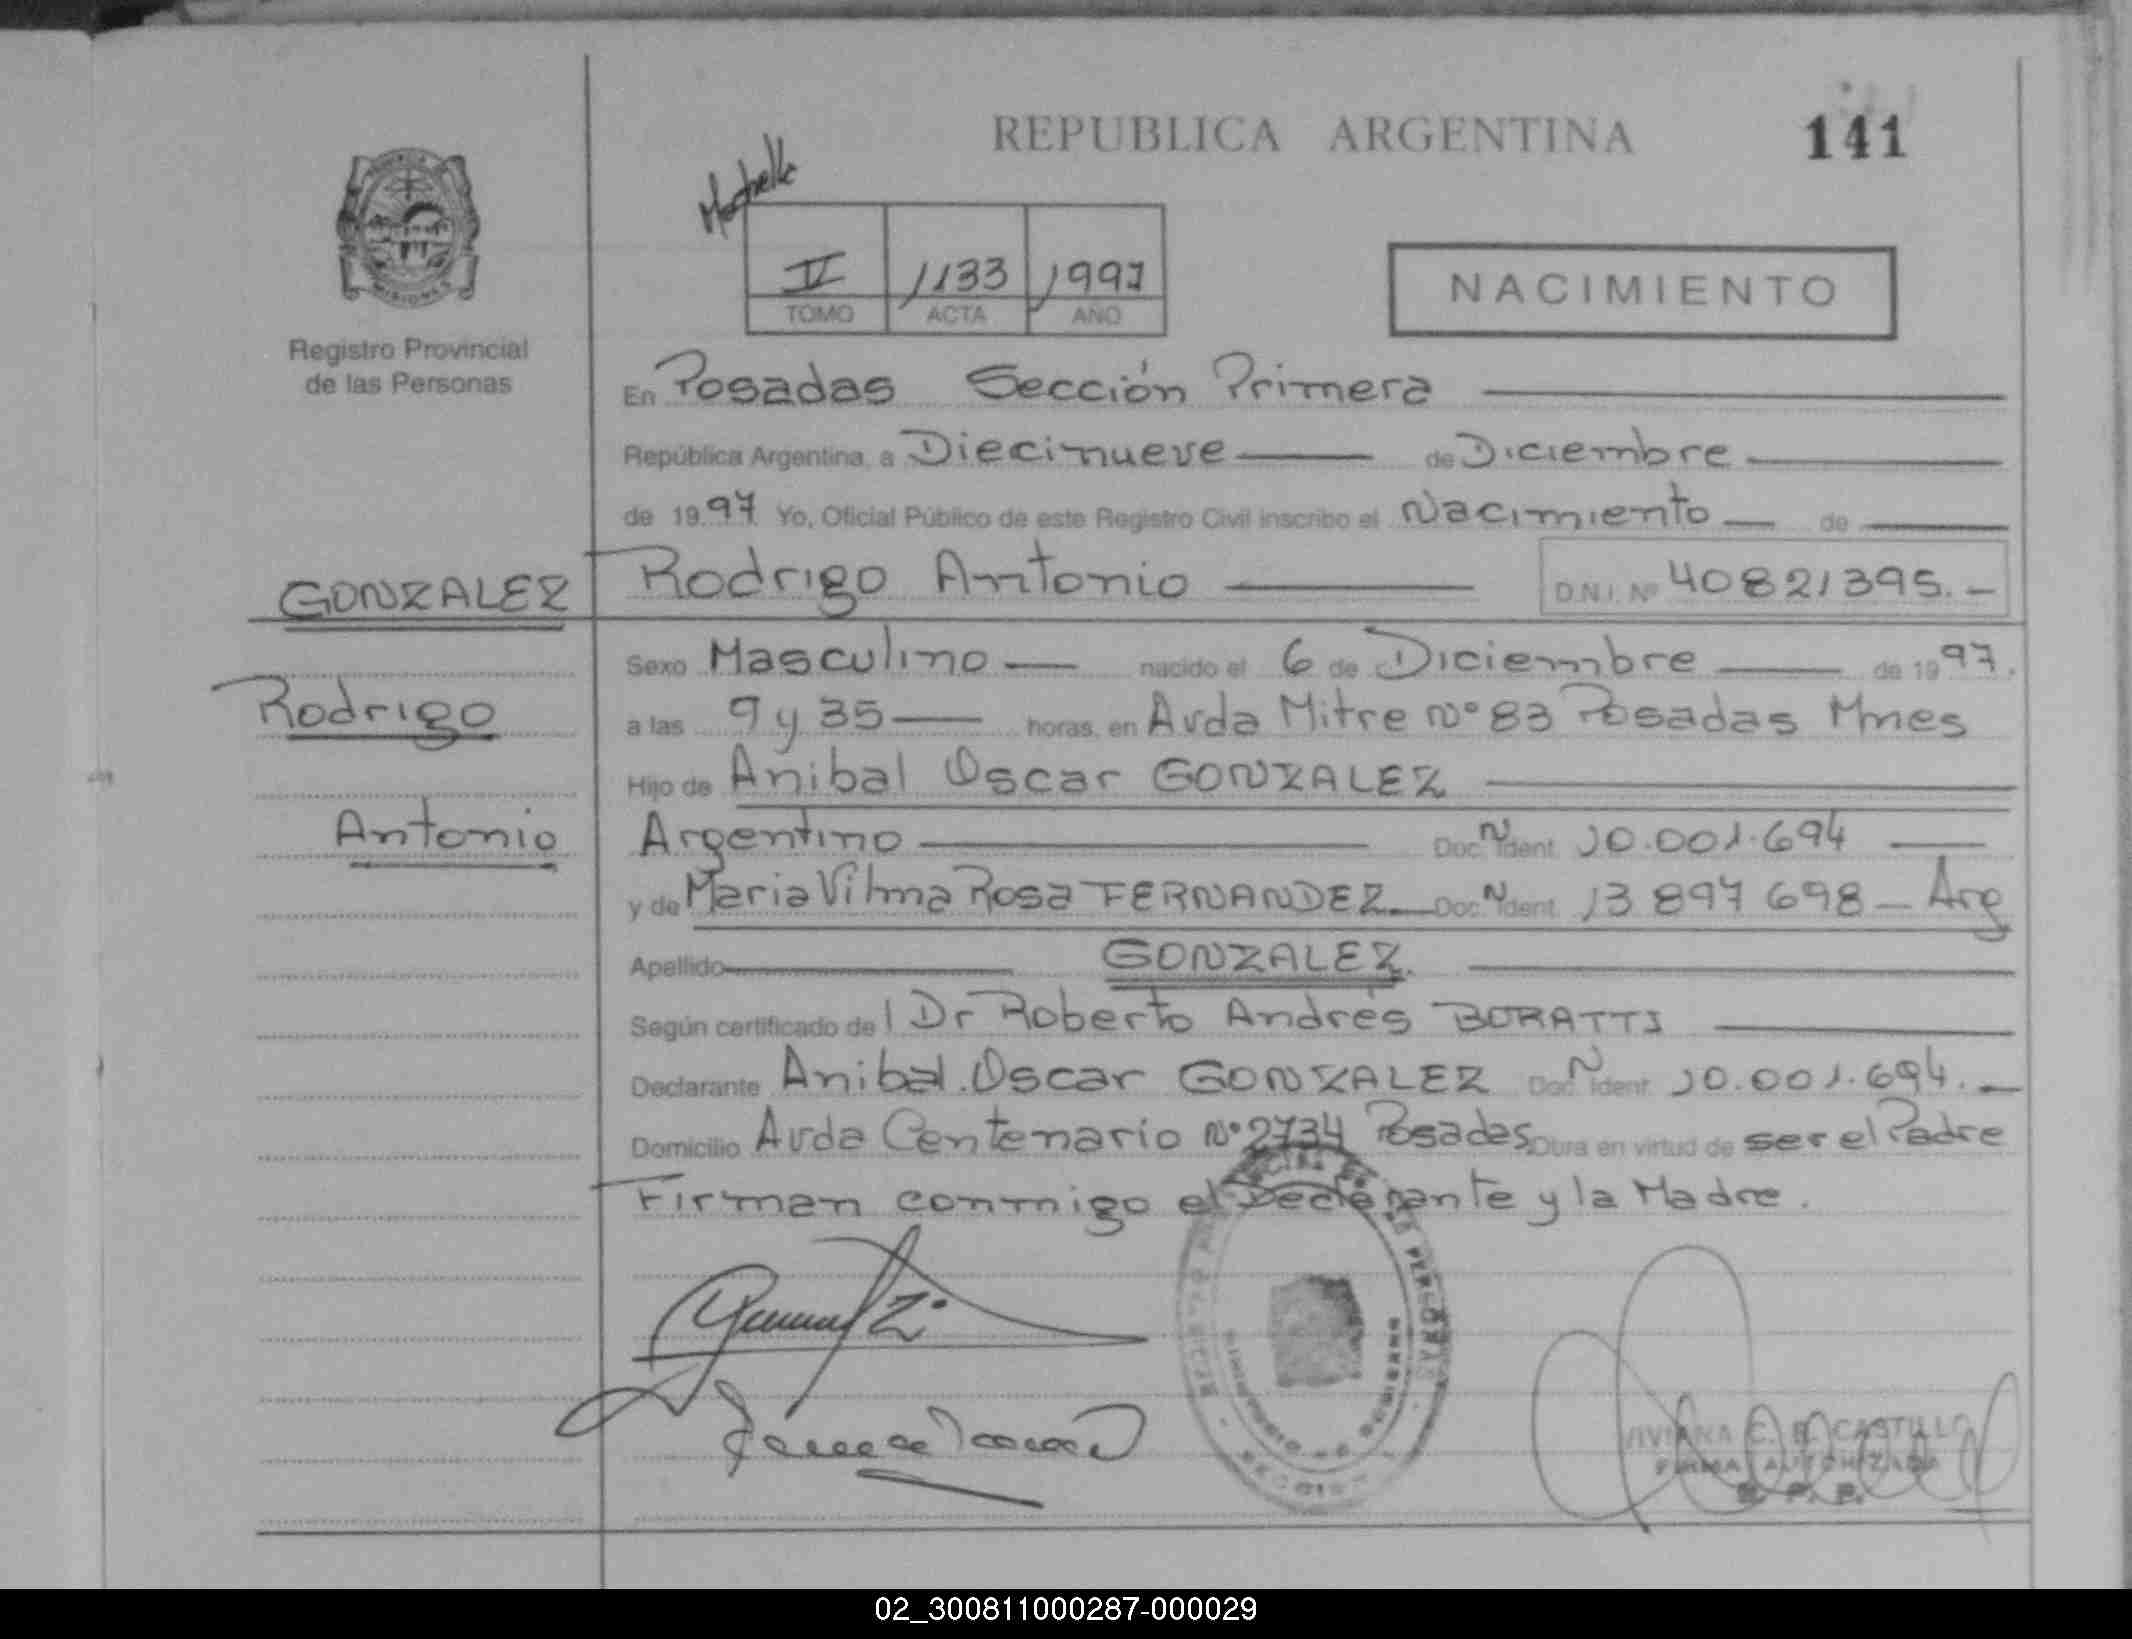 REPUBLICA ARGENTINA
141
MISIONES
Registro Provincial
de las Personas
II 1133 1997
TOMO ACTA AÑO
NACIMIENTO
En Posadas Sección Primera
República Argentina, a Diecinueve de Diciembre
de 1997 Yo, Oficial Público de este Registro Civil inscribo el Nacimiento de
GONZALEZ Rodrigo Antonio D.N.I. Nº 40821395.-
Sexo Masculino nacido el 6 de Diciembre de 1997.
Rodrigo
a las 9 y 35 horas, en Avda Mitre Nº 83 Posadas Mnes
Hijo de Anibal Oscar GONZALEZ
Antonio
Argentino Doc. N Ident. 10.001.694
y de Maria Vilma Rosa FERNANDEZ Doc. N Ident. 13 897 698 - Arg
Apellido GONZALEZ.
Según certificado de l Dr Roberto Andrés BORATTI
Declarante Anibal Oscar GONZALEZ Doc. N Ident. 10.001.694.-
Domicilio Avda Centenario Nº 2734 Posadas Obra en virtud de ser el Padre
Firman conmigo el Declarante y la Madre.
VIVIANA C. B. CASTILLO
FIRMA AUTORIZADA
R. P. P.
02_300811000287-000029